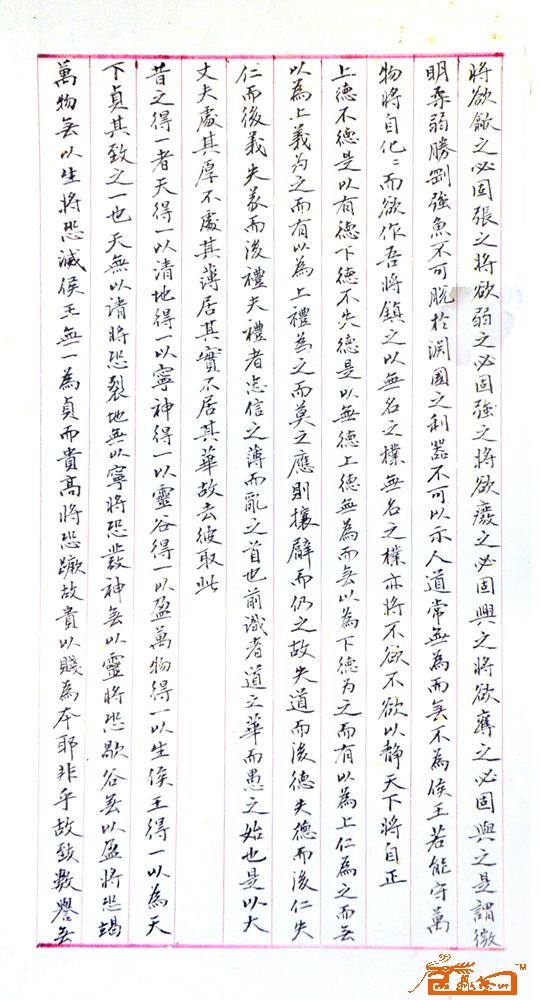 將欲歙之必固張之將欲弱之必固強之將欲廢之必固興之將欲奪之必固與之是謂微
明柔弱勝剛強魚不可脫於淵國之利器不可以示人道常無為而無不為侯王若能守萬
物將自化〻而欲作吾將鎮之以無名之樸無名之樸亦將不欲不欲以靜天下將自正
上德不德是以有德下德不失德是以無德上德無為而無以為下德为之而有以為上仁為之而無
以為上義为之而有以為上禮為之而莫之應則攘臂而仍之故失道而後德失德而後仁失
仁而後義失義而後禮夫禮者忠信之薄而亂之首也前識者道之華而愚之始也是以大
丈夫處其厚不處其薄居其實不居其華故去彼取此
昔之得一者天得一以清地得一以寧神得一以靈谷得一以盈萬物得一以生侯王得一以為天
下貞其致之一也天無以清將恐裂地無以寧將恐發神無以靈將恐歇谷無以盈將恐竭
萬物無以生將恐滅侯王無一為貞而貴高將恐蹶故貴以賤為本耶非乎故致數譽無